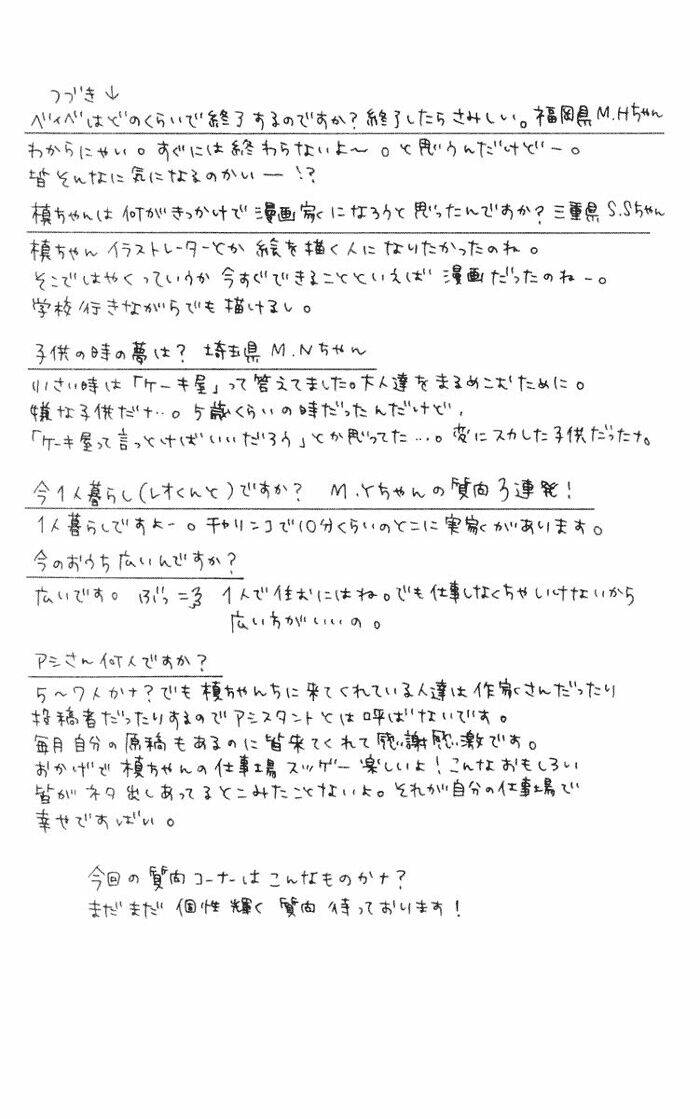 つづき↓
ベイベはどのくらいで終了するのですか?終了したらさみしい。福岡県M.Hちゃん
わからにゃい。すぐには終わらないよ〜。と思うんだけどー。
皆そんなに気になるのかいー!?
槙ちゃんは何がきっかけで漫画家になろうと思ったんですか?三重県S.Sちゃん
槙ちゃんイラストレーターとか絵を描く人になりたかったのね。
そこではやくっていうか今すぐできることといえば漫画だったのねー。
学校行きながらでも描けるし。
子供の時の夢は?埼玉県M.Nちゃん
小さい時は「ケーキ屋」って答えてました。大人達をまるめこむために。
嫌な子供だナ…。5歳くらいの時だったんだけど、
「ケーキ屋って言っとけばいいだろう」とか思ってた…。変にスカした子供だったナ。
今1人暮らし(レオくんと)ですか? M.Yちゃんの質問3連発!
1人暮らしですよー。チャリンコで10分くらいのとこに実家があります。
今のおうち広いんですか?
広いです。ぶっこみ 1人で住むにはね。でも仕事しなくちゃいけないから
広い方がいいの。
アシさん何人ですか?
5〜7人かナ?でも槙ちゃんちに来てくれている人達は作家さんだったり
投稿者だったりするのでアシスタントとは呼ばないです。
毎月自分の原稿もあるのに皆来てくれて感謝感激です。
おかげで槙ちゃんの仕事場スッゲー楽しいよ!こんなおもしろい
皆がネタ出しあってるとこみたことないよ。それが自分の仕事場で
幸せですばい。
今回の質問コーナーはこんなものかナ?
まだまだ個性輝く質問待っております!